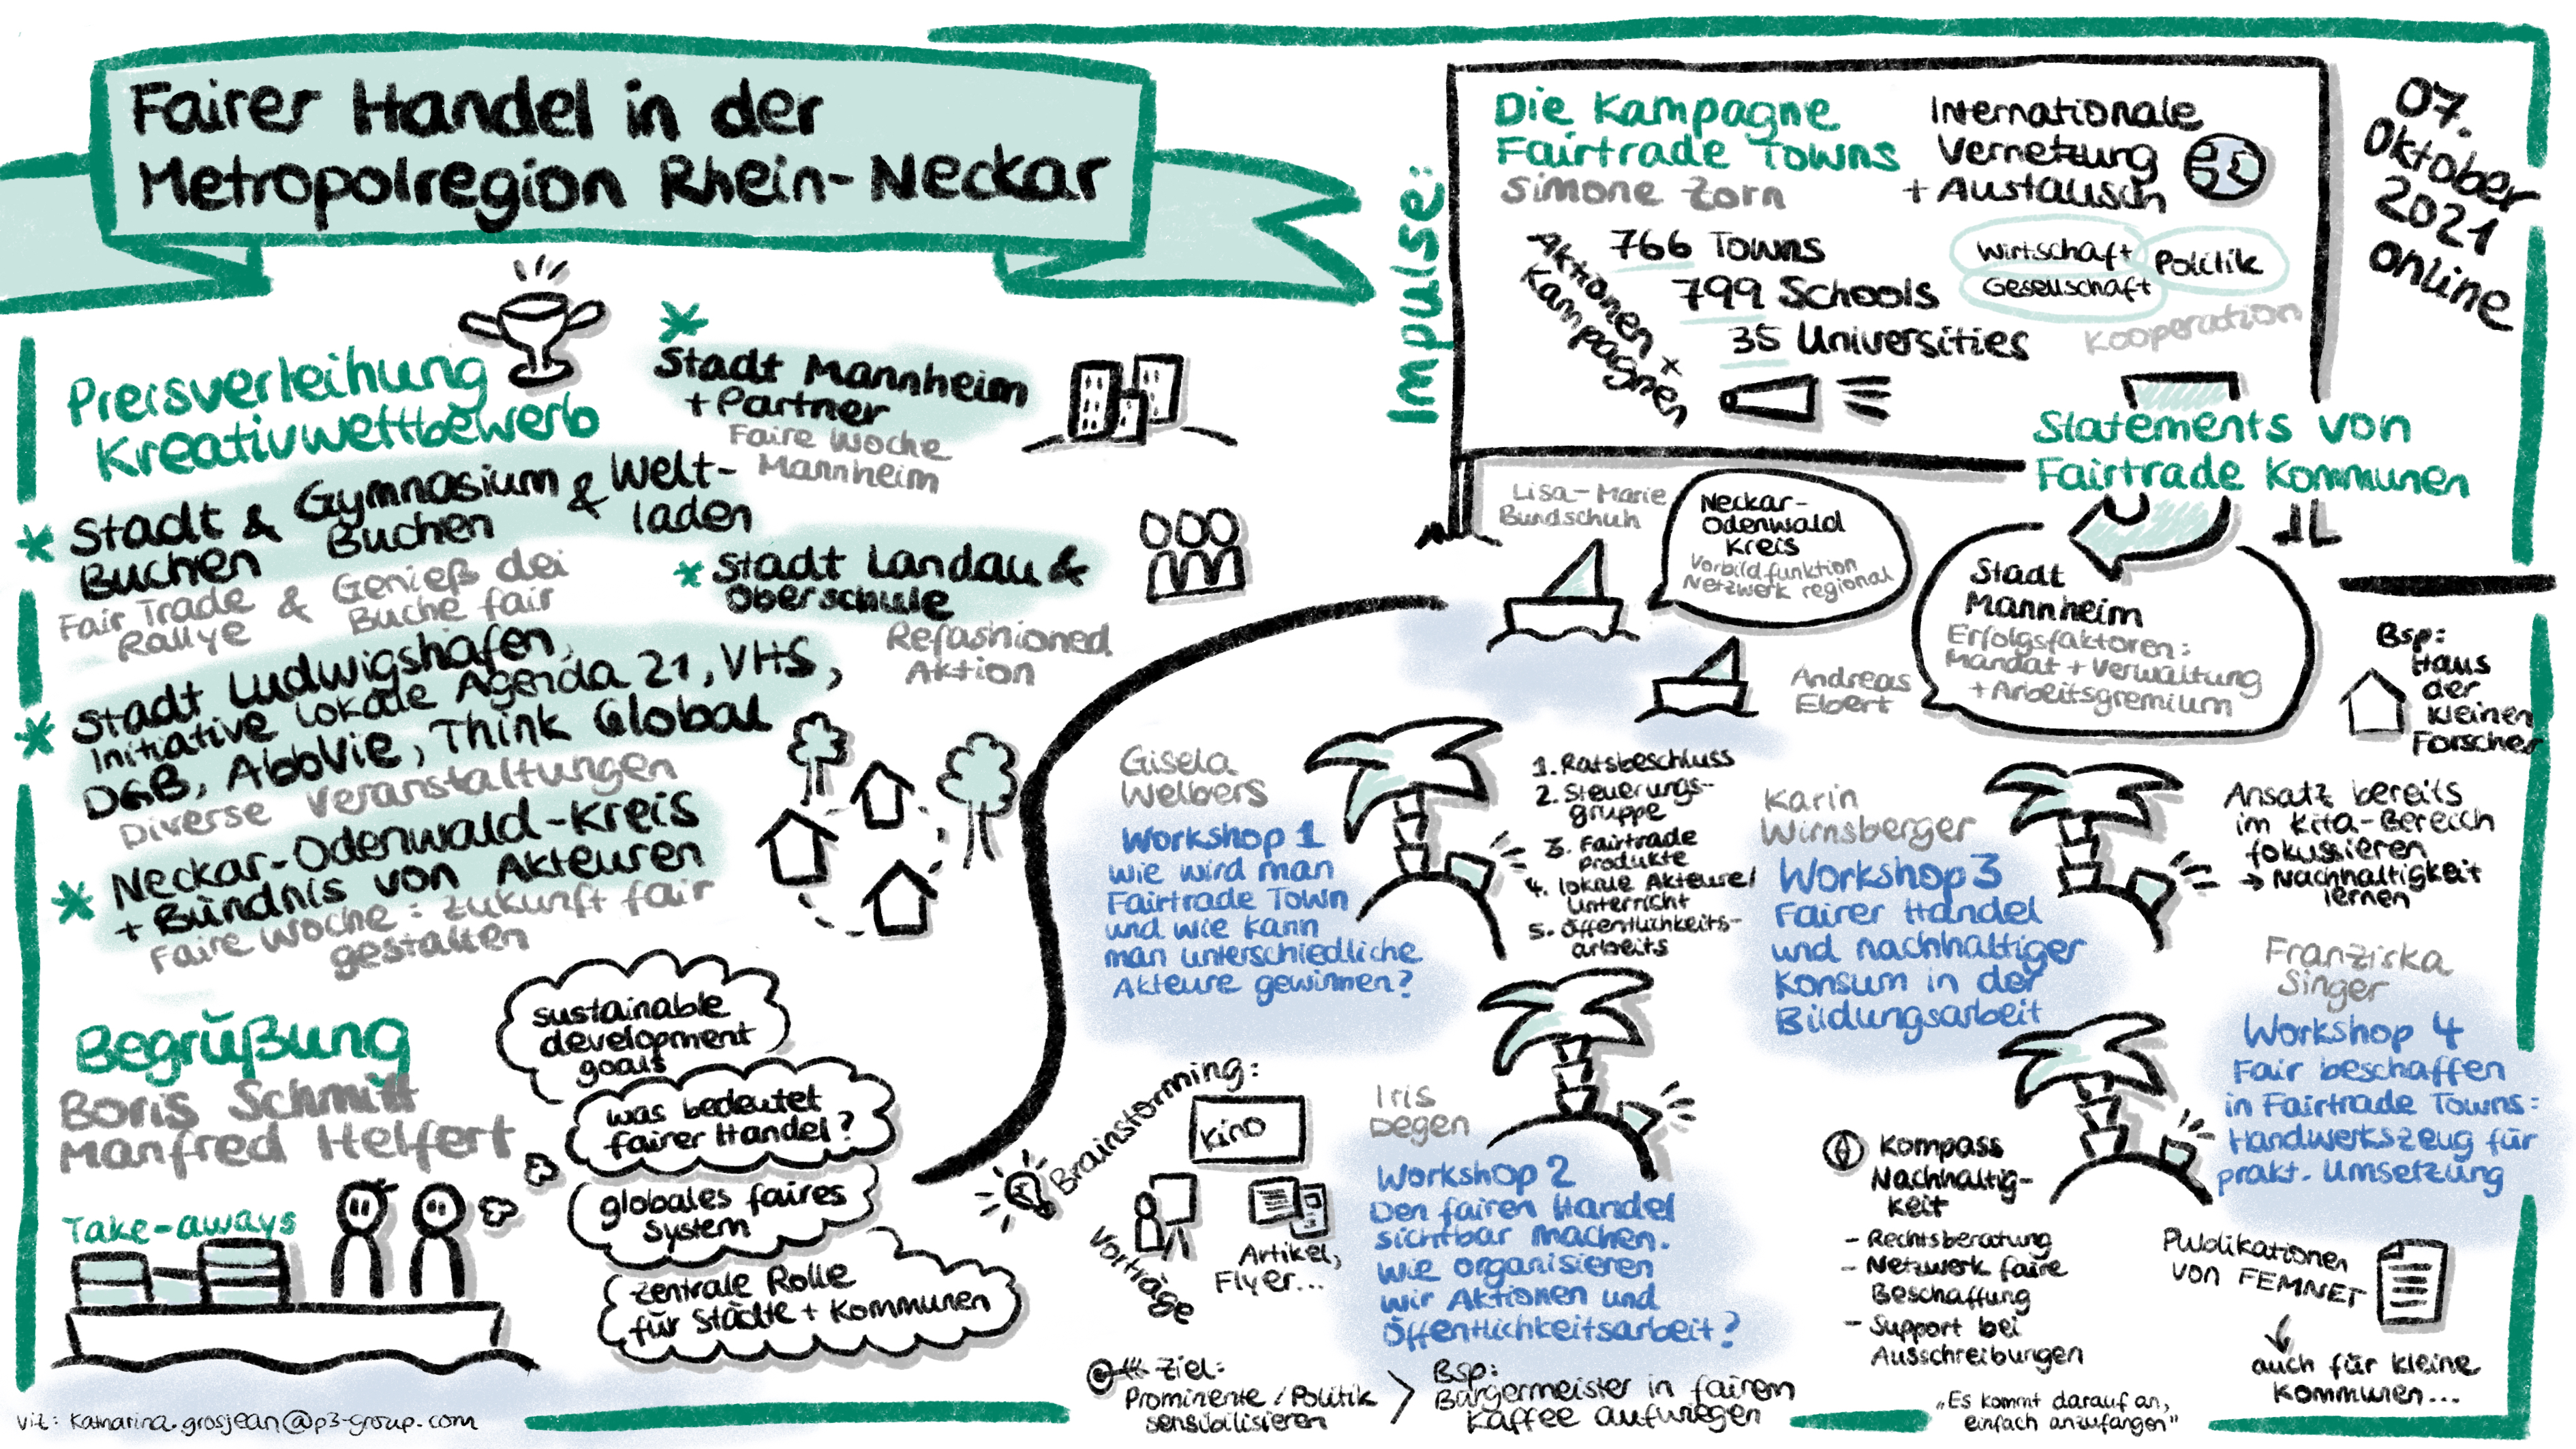 Fairer Handel in der
Metropolregion Rhein-Neckar
Preisverleihung
Kreativwettbewerb
* Stadt Mannheim
+ Partner
Faire Woche
Mannheim
* Stadt & Gymnasium & Welt-
Buchen Buchen laden
Fair Trade & Genieß dei
Rallye Buche fair
* Stadt Landau &
Oberschule
Refashioned
Aktion
* Stadt Ludwigshafen,
Initiative Lokale Agenda 21, VHS,
DGB, AbbVie, Think Global
Diverse Veranstaltungen
* Neckar-Odenwald-Kreis
+ Bündnis von Akteuren
Faire Woche: Zukunft fair
gestalten
Begrüßung
Boris Schmitt
Manfred Helfert
Take-aways
sustainable
development
goals
was bedeutet
fairer Handel?
globales faires
System
zentrale Rolle
für Städte + Kommunen
viz: katharina.grosjean@p3-group.com
Impulse:
Die Kampagne
Fairtrade Towns
Simone Zorn
Internationale
Vernetzung
+ Austausch
766 Towns
799 Schools
35 Universities
Aktionen +
Kampagnen
Wirtschaft
Politik
Gesellschaft
Kooperation
07.
Oktober
2021
online
Statements von
Fairtrade Kommunen
Lisa-Marie
Bundschuh
Neckar-
Odenwald
Kreis
Vorbildfunktion
Netzwerk regional
Andreas
Ebert
Stadt
Mannheim
Erfolgsfaktoren:
Mandat + Verwaltung
+ Arbeitsgremium
Bsp:
Haus
der
kleinen
Forscher
Gisela
Welbers
Workshop 1
Wie wird man
Fairtrade Town
und wie kann
man unterschiedliche
Akteure gewinnen?
1. Ratsbeschluss
2. Steuerungs-
gruppe
3. Fairtrade
Produkte
4. lokale Akteure/
Unterricht
5. Öffentlichkeits-
arbeits
Karin
Wirnsberger
Workshop 3
Fairer Handel
und nachhaltiger
Konsum in der
Bildungsarbeit
Ansatz bereits
im Kita-Bereich
fokussieren
→ Nachhaltigkeit
lernen
Brainstorming:
Kino
Vorträge
Artikel,
Flyer...
Iris
Degen
Workshop 2
Den fairen Handel
sichtbar machen.
Wie organisieren
wir Aktionen und
Öffentlichkeitsarbeit?
Ziel:
Prominente / Politik
sensibilisieren
>
Bsp:
Bürgermeister in fairem
Kaffee aufwiegen
Franziska
Singer
Workshop 4
Fair beschaffen
in Fairtrade Towns:
Handwerkszeug für
prakt. Umsetzung
Kompass
Nachhaltig-
keit
- Rechtsberatung
- Netzwerk faire
Beschaffung
- Support bei
Ausschreibungen
Publikationen
von FEMNET
↓
auch für kleine
Kommunen...
„Es kommt darauf an,
einfach anzufangen"